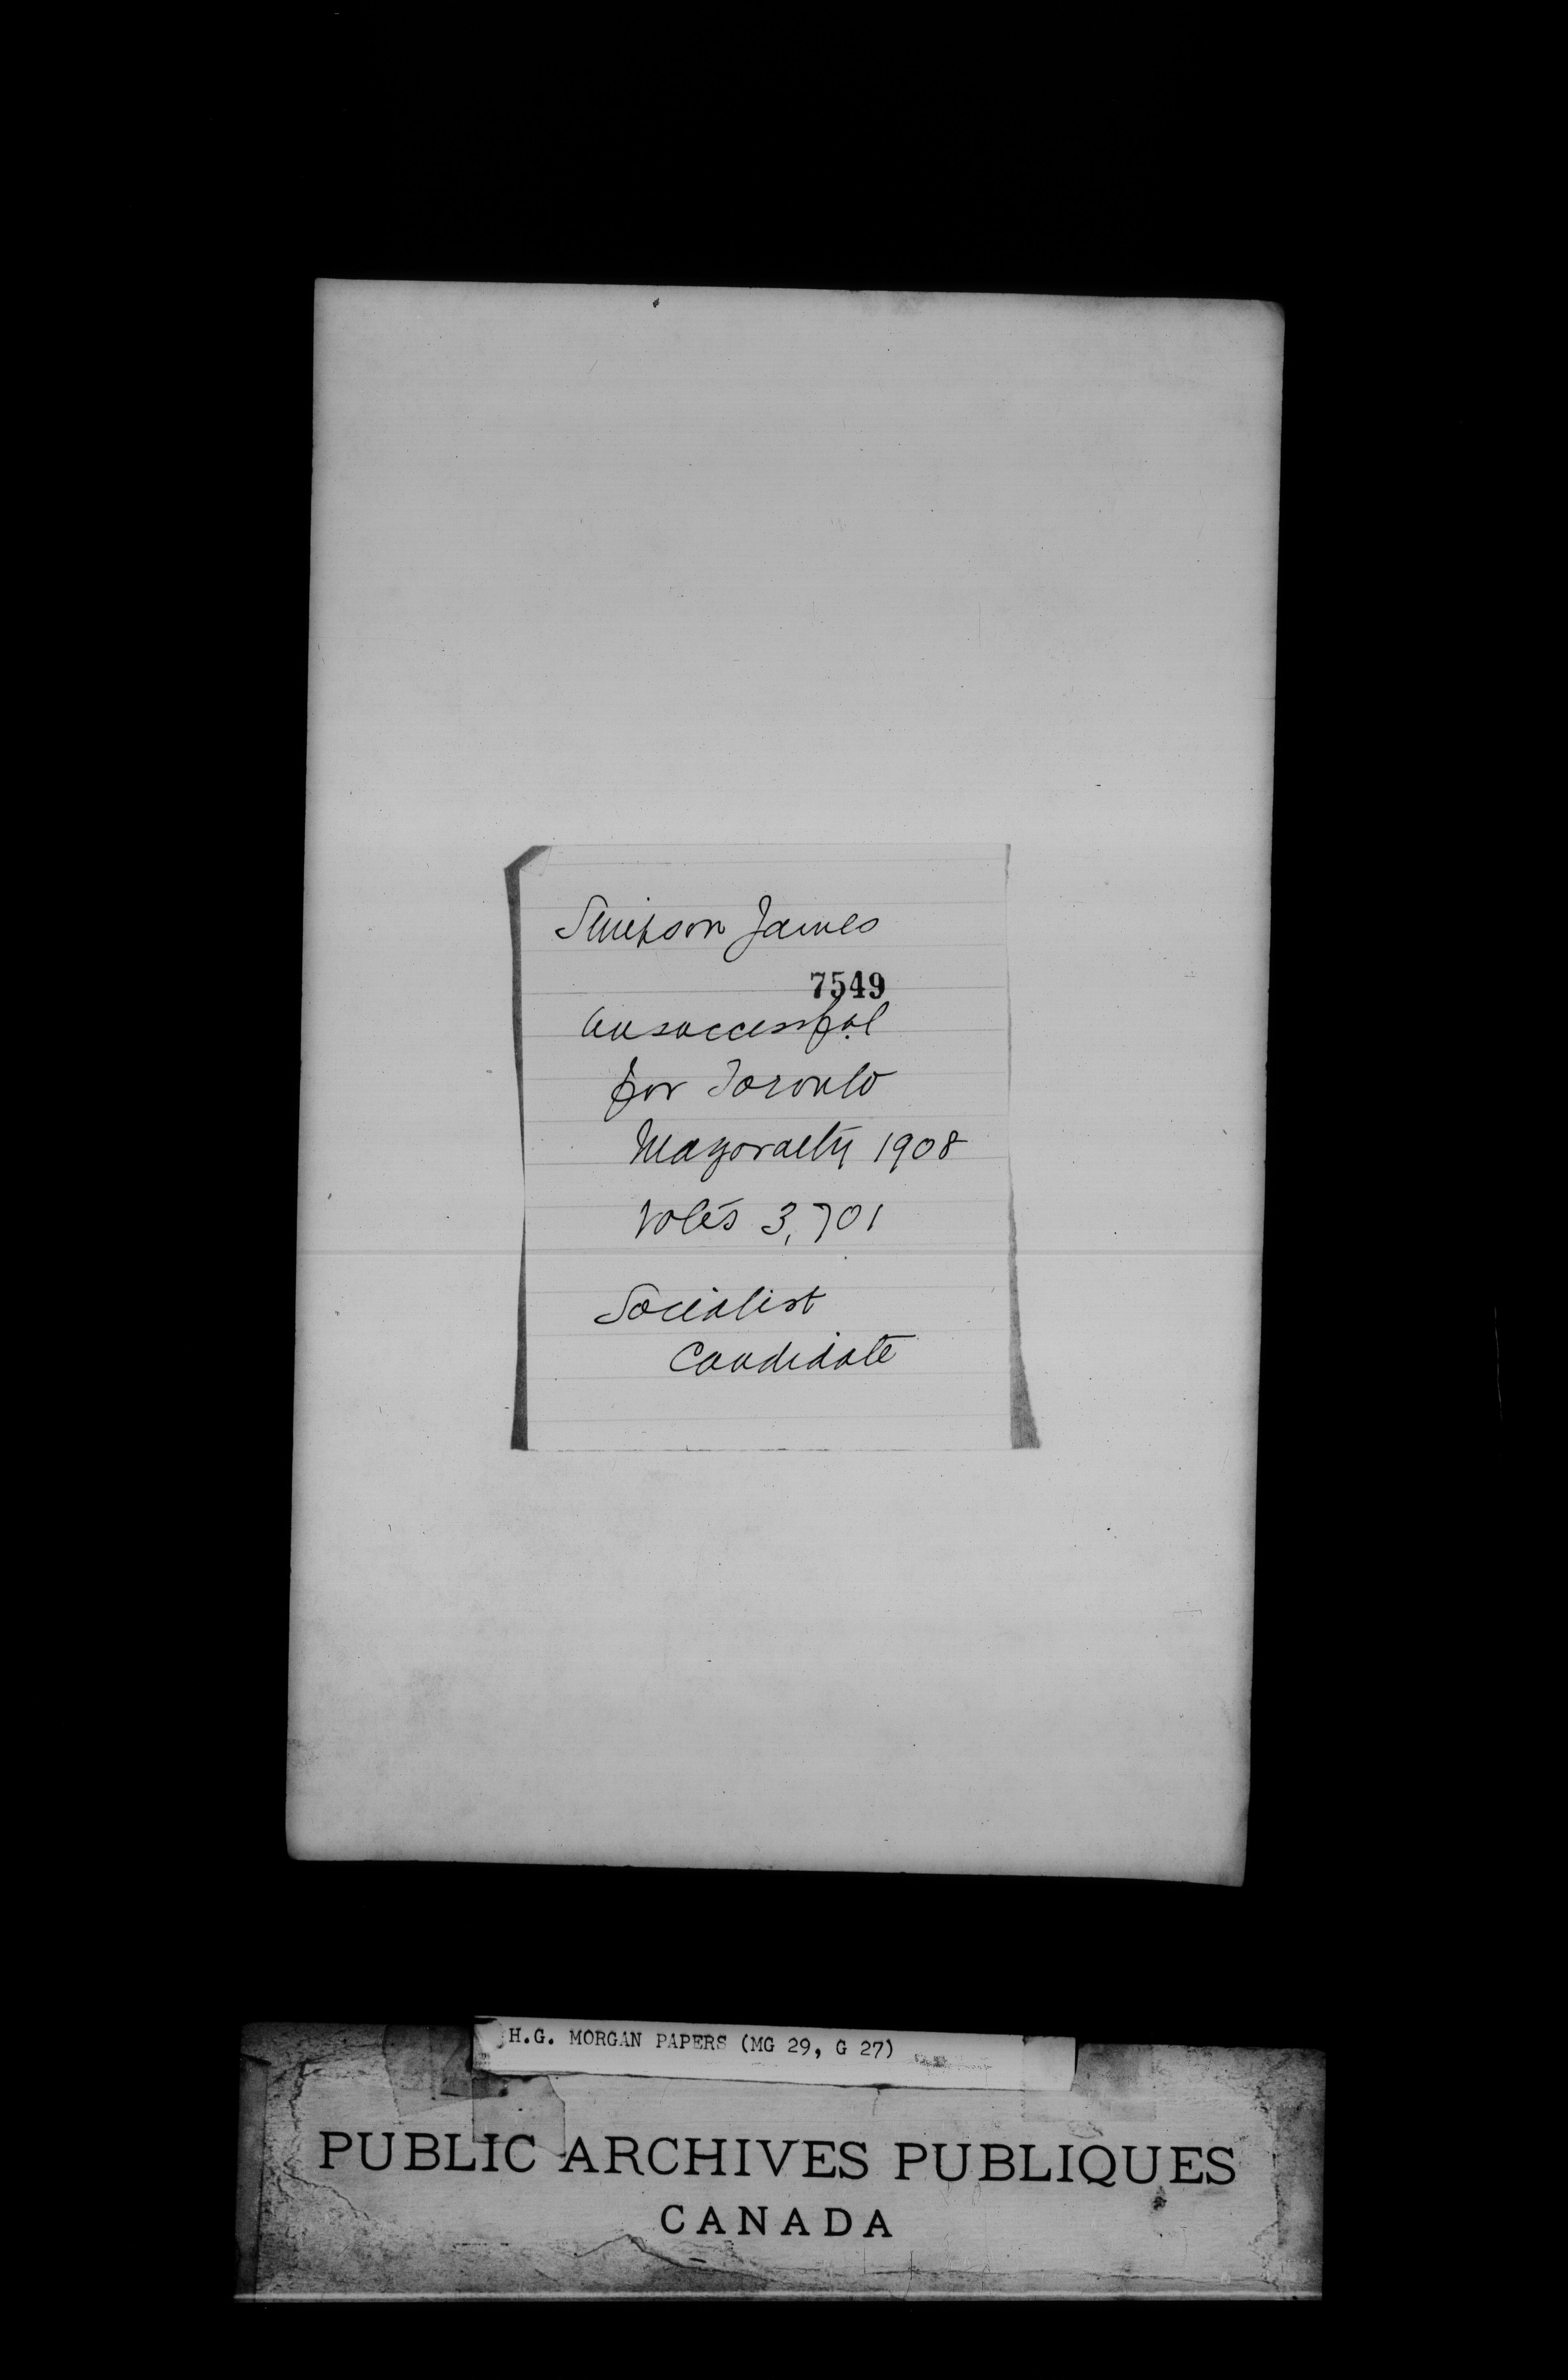 Simpson James
7549
Unsuccessful
for Toronto
Mayoralty 1908
Votes 3,701
Socialist
Candidate
H.G. MORGAN PAPERS (MG 29, G 27)
PUBLIC ARCHIVES PUBLIQUES
CANADA